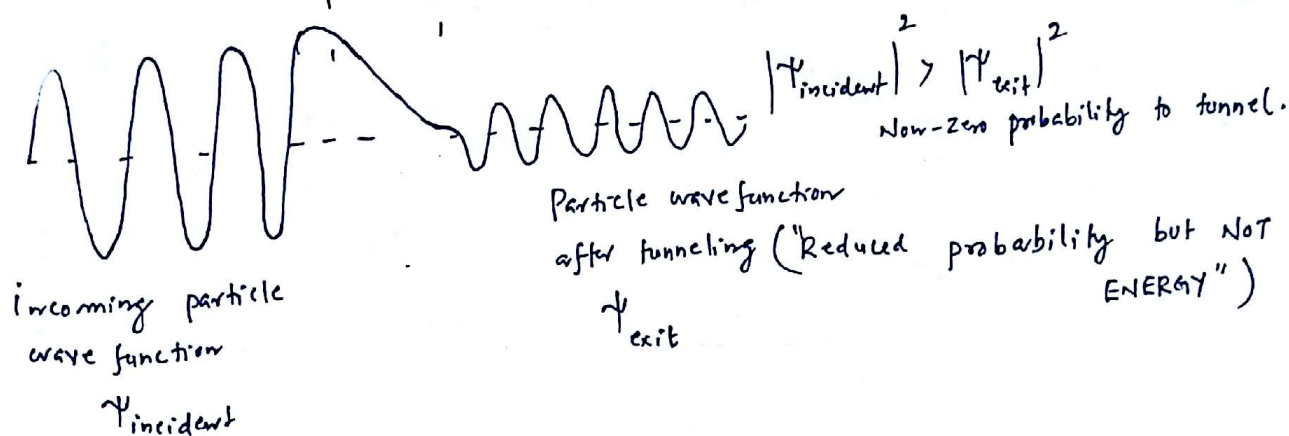 |Ψincident|² > |Ψexit|²
Non-zero probability to tunnel.
Particle wave function
after tunneling ("Reduced probability but NOT
ENERGY")
Ψexit
incoming particle
wave function
Ψincident